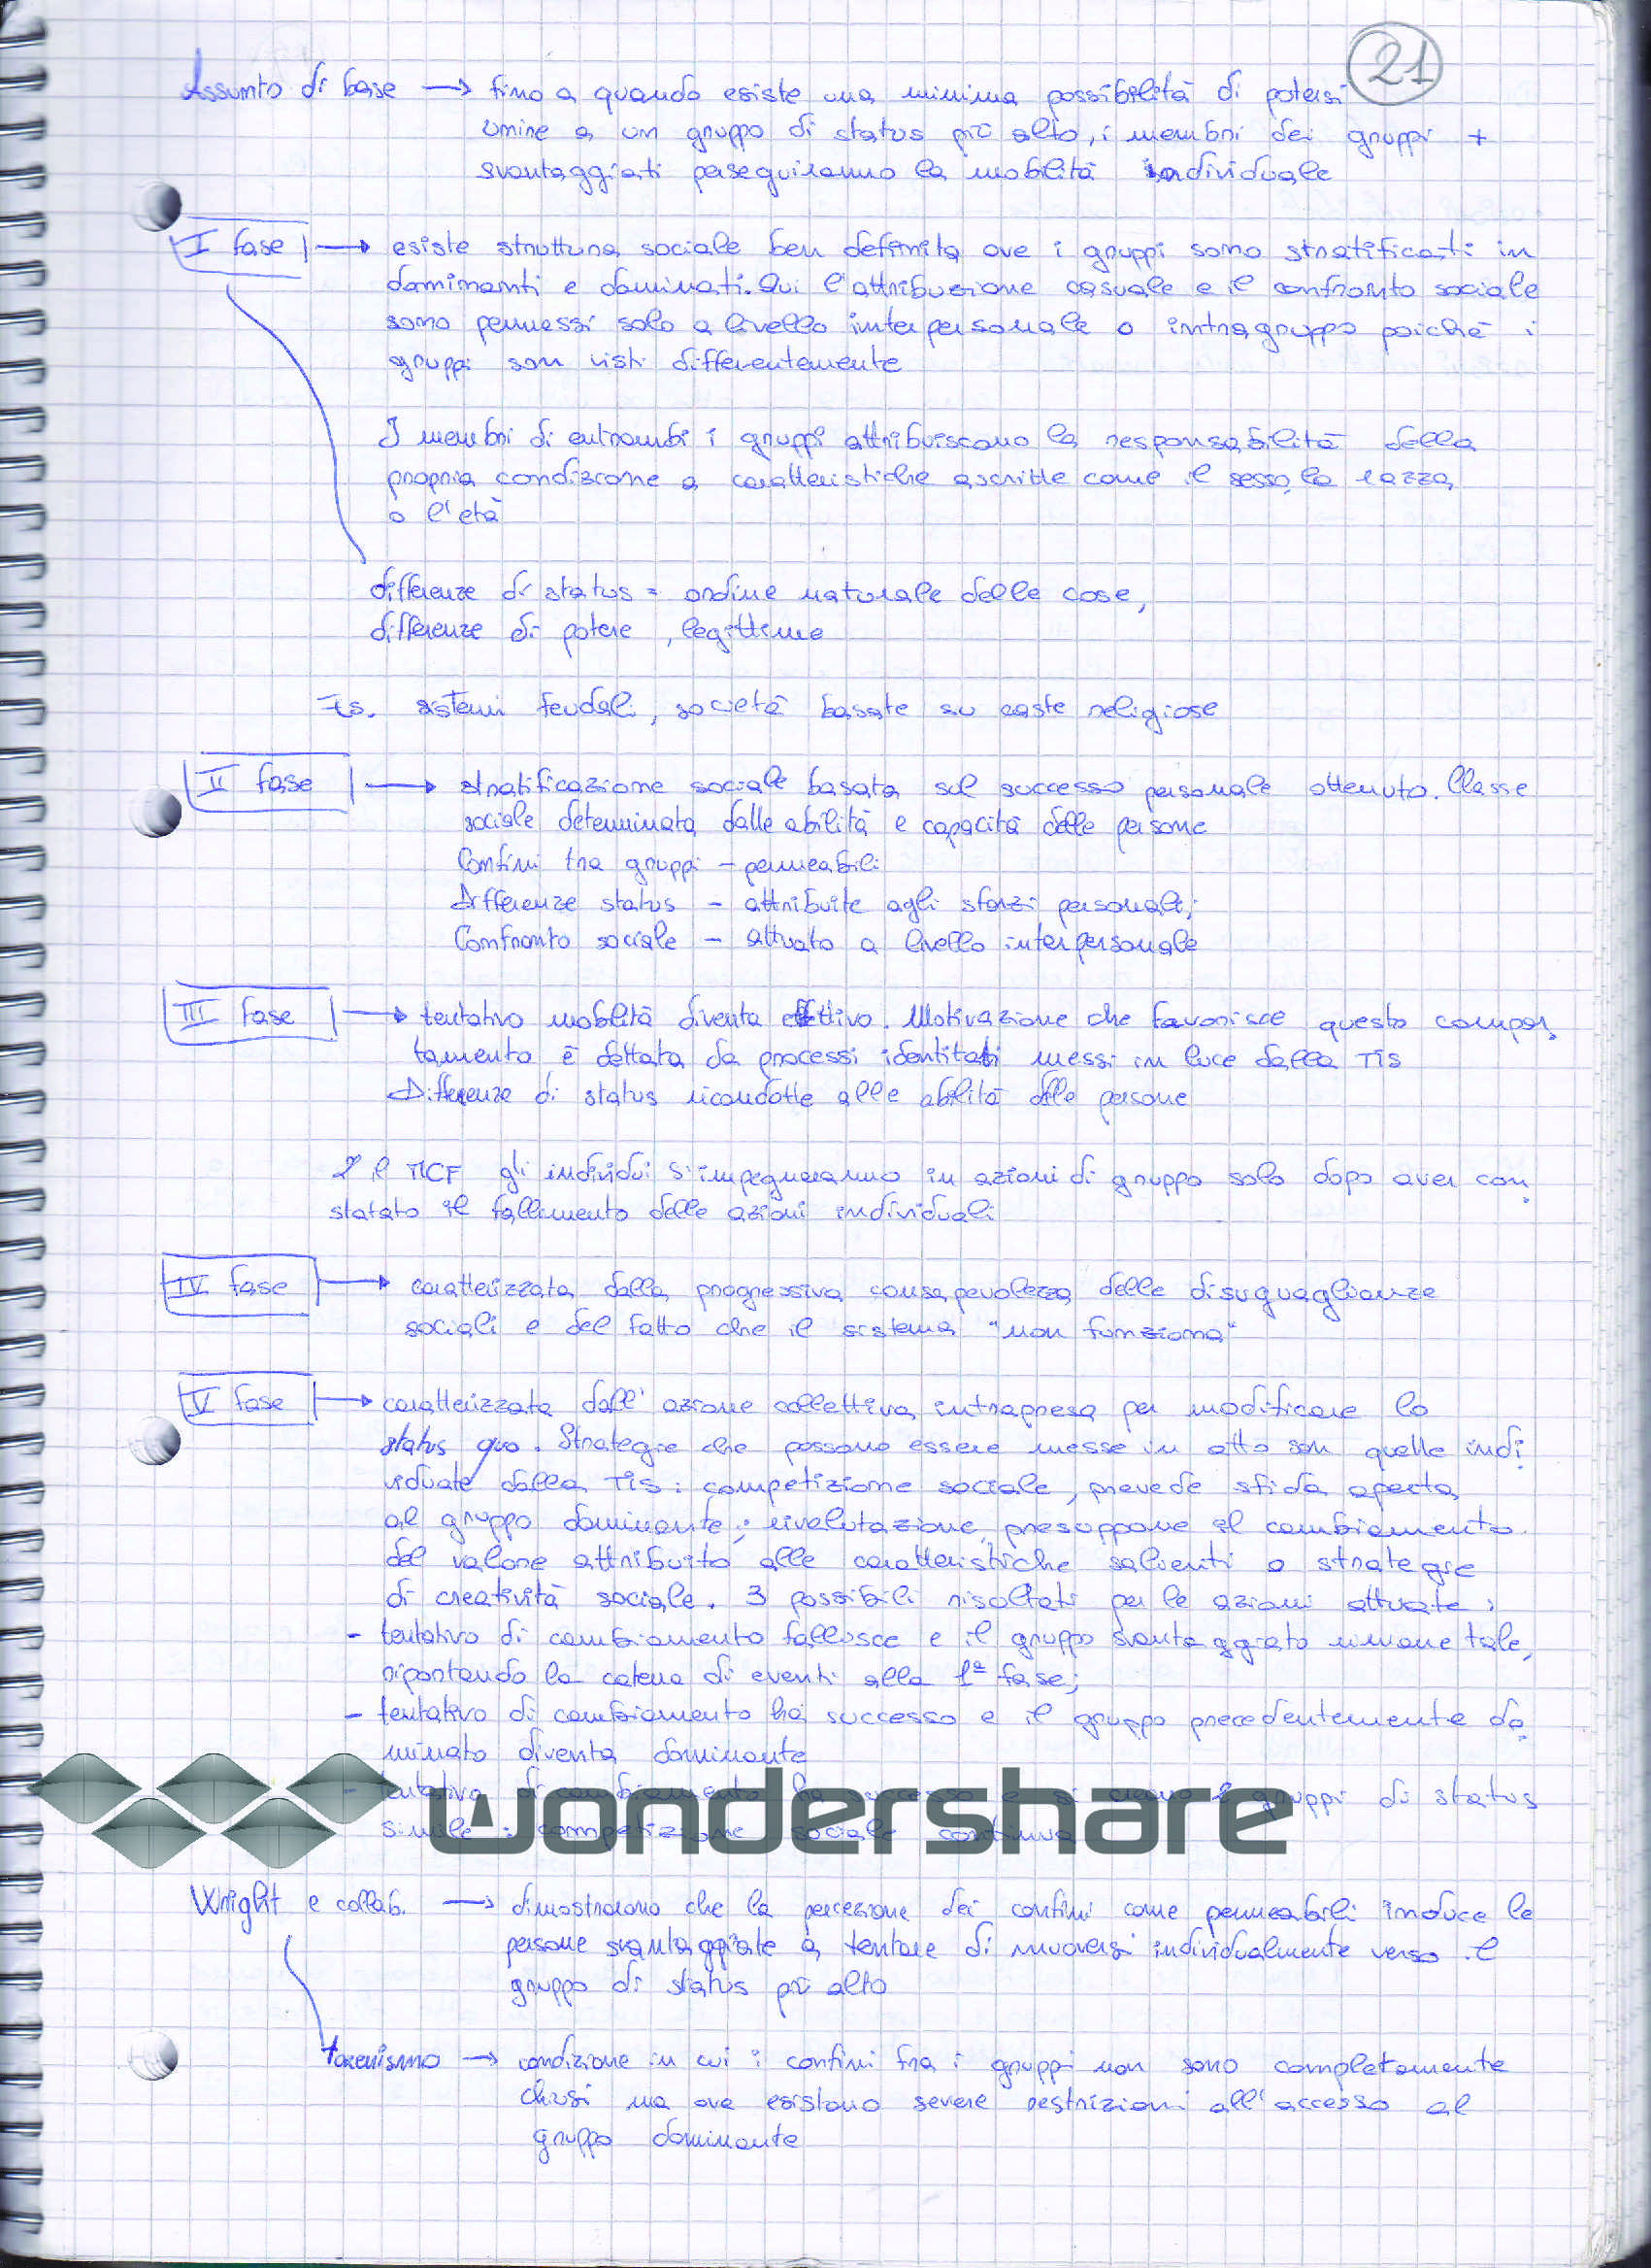 21
Assunto di base → fino a quando esiste una minima possibilità di potersi
unire a un gruppo di status più alto, i membri dei gruppi +
svantaggiati perseguiranno la mobilità individuale
I fase → esiste struttura sociale ben definita ove i gruppi sono stratificati in
dominanti e dominati. Qui l'attribuzione casuale e il confronto sociale
sono permessi solo a livello interpersonale o intragruppo poiché i
gruppi son visti differentemente
I membri di entrambi i gruppi attribuiscono la responsabilità della
propria condizione a caratteristiche ascritte come il sesso, la razza,
o l'età
differenze di status = ordine naturale delle cose,
differenze di potere, legittime
Es. sistemi feudali, società basate su caste religiose
II fase → stratificazione sociale basata sul successo personale ottenuto. Classe
sociale determinata dalle abilità e capacità delle persone
Confini tra gruppi - permeabili
Differenze status - attribuite agli sforzi personali;
Confronto sociale - attuato a livello interpersonale
III fase → tentativo mobilità diventa effettivo. Motivazione che favorisce questo compor
tamento è dettata da processi identitari messi in luce dalla TIS
Differenze di status ricondotte alle abilità delle persone
MCF gli individui s'impegneranno in azioni di gruppo solo dopo aver con
statato il fallimento delle azioni individuali
IV fase → caratterizzata dalla progressiva consapevolezza delle disuguaglianze
sociali e del fatto che il sistema "non funziona"
V fase → caratterizzata dall'azione collettiva intrapresa per modificare lo
status quo. Strategie che possono essere messe in atto son quelle indi
viduate dalla TIS: competizione sociale, prevede sfida aperta
al gruppo dominante; rivalutazione, presuppone il cambiamento
del valore attribuito alle caratteristiche salienti o strategie
di creatività sociale. 3 possibili risultati per le azioni attuate:
- tentativo di cambiamento fallisce e il gruppo svantaggiato rimane tale,
riportando la catena di eventi alla 1ª fase;
- tentativo di cambiamento ha successo e il gruppo precedentemente do
minato diventa dominante
- tentativo di cambiamento ha successo e si creano 2 gruppi di status
simile: competizione sociale continua
wondershare
Wright e collab. → dimostrarono che la percezione dei confini come permeabili induce le
persone svantaggiate a tentare di muoversi individualmente verso il
gruppo di status più alto
tokenismo → condizione in cui i confini fra i gruppi non sono completamente
chiusi ma ove esistono severe restrizioni all'accesso al
gruppo dominante